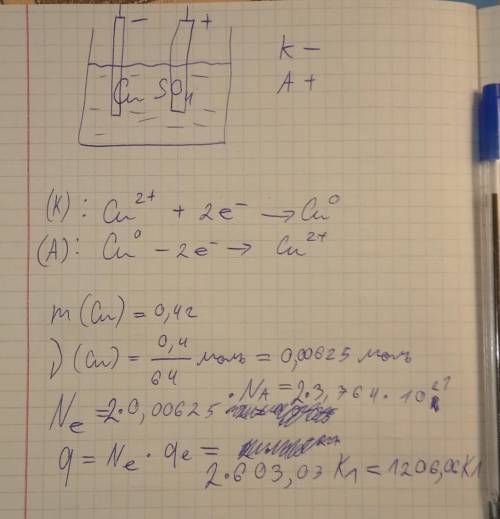 − +
K −
Cu SO₄ A +
(K): Cu²⁺ + 2e⁻ → Cu⁰
(A): Cu⁰ − 2e⁻ → Cu²⁺
m (Cu) = 0,4 г
ν (Cu) = 0,4/64 моль = 0,00625 моль
Nₑ = 2·0,00625 · N_A = 2·3,764·10²¹
q = Nₑ · qₑ =
2·603,03 Кл = 1206,06 Кл